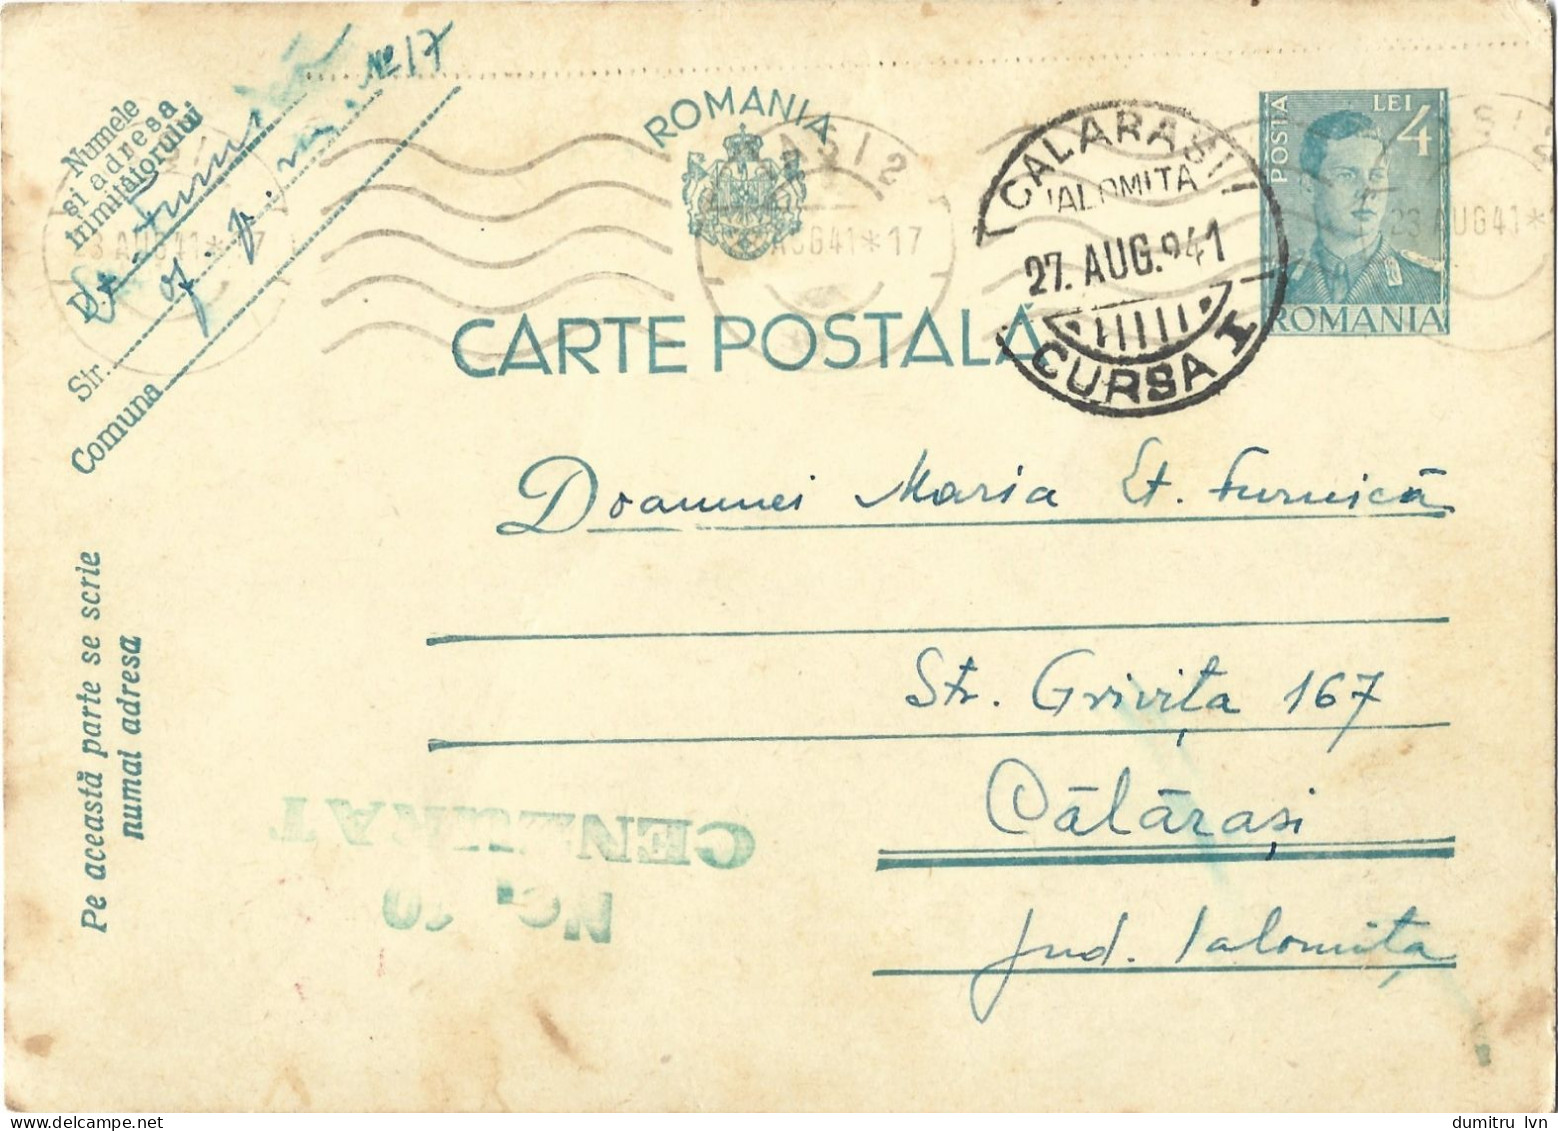 Numele
si adresa
trimitătorului
Nº 17
of. p. m.
Str.
Comuna
ROMANIA
CARTE POSTALĂ
IASI 2
23 AUG 41 * 17
CALARASI I
IALOMITA
27. AUG. 941
CURSA I
POSTA
LEI 4
ROMANIA
Doamnei Maria Et. Furnică
Str. Grivița 167
Călărași
Jud. Ialomița
Pe această parte se scrie
numai adresa
CENZURAT
No. 10
dumitru lvn